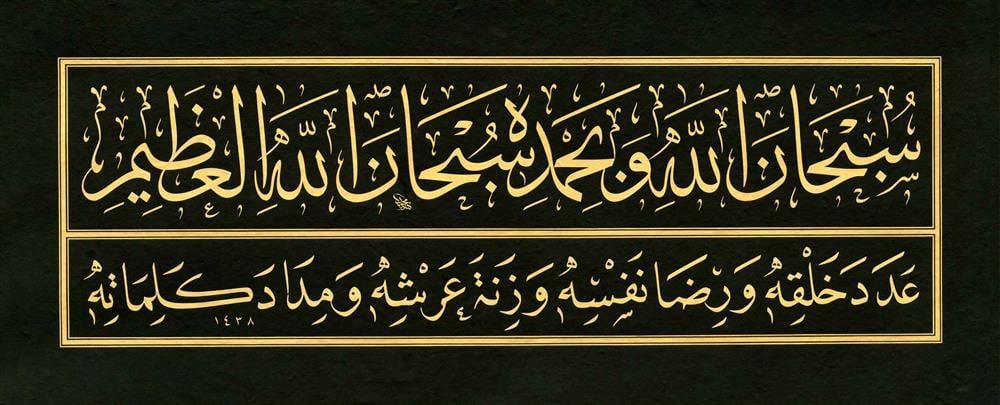 سُبْحَانَ اللّٰهِ وَبِحَمْدِهِ سُبْحَانَ اللّٰهِ الْعَظِيمِ
عَدَدَ خَلْقِهِ وَرِضَا نَفْسِهِ وَزِنَةَ عَرْشِهِ وَمِدَادَ كَلِمَاتِهِ
١٤٣٨